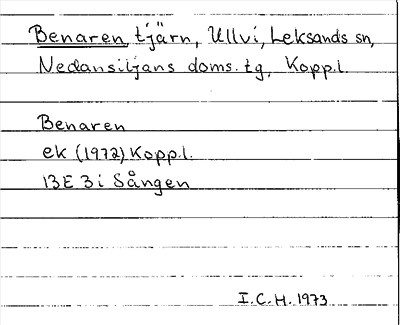 Benaren, tjärn, Ullvi, Leksands sn,
Nedansiljans doms. tg, Kopp.l.
Benaren
ek (1972) Kopp.l.
13E 3i Sången
I.C.H. 1973